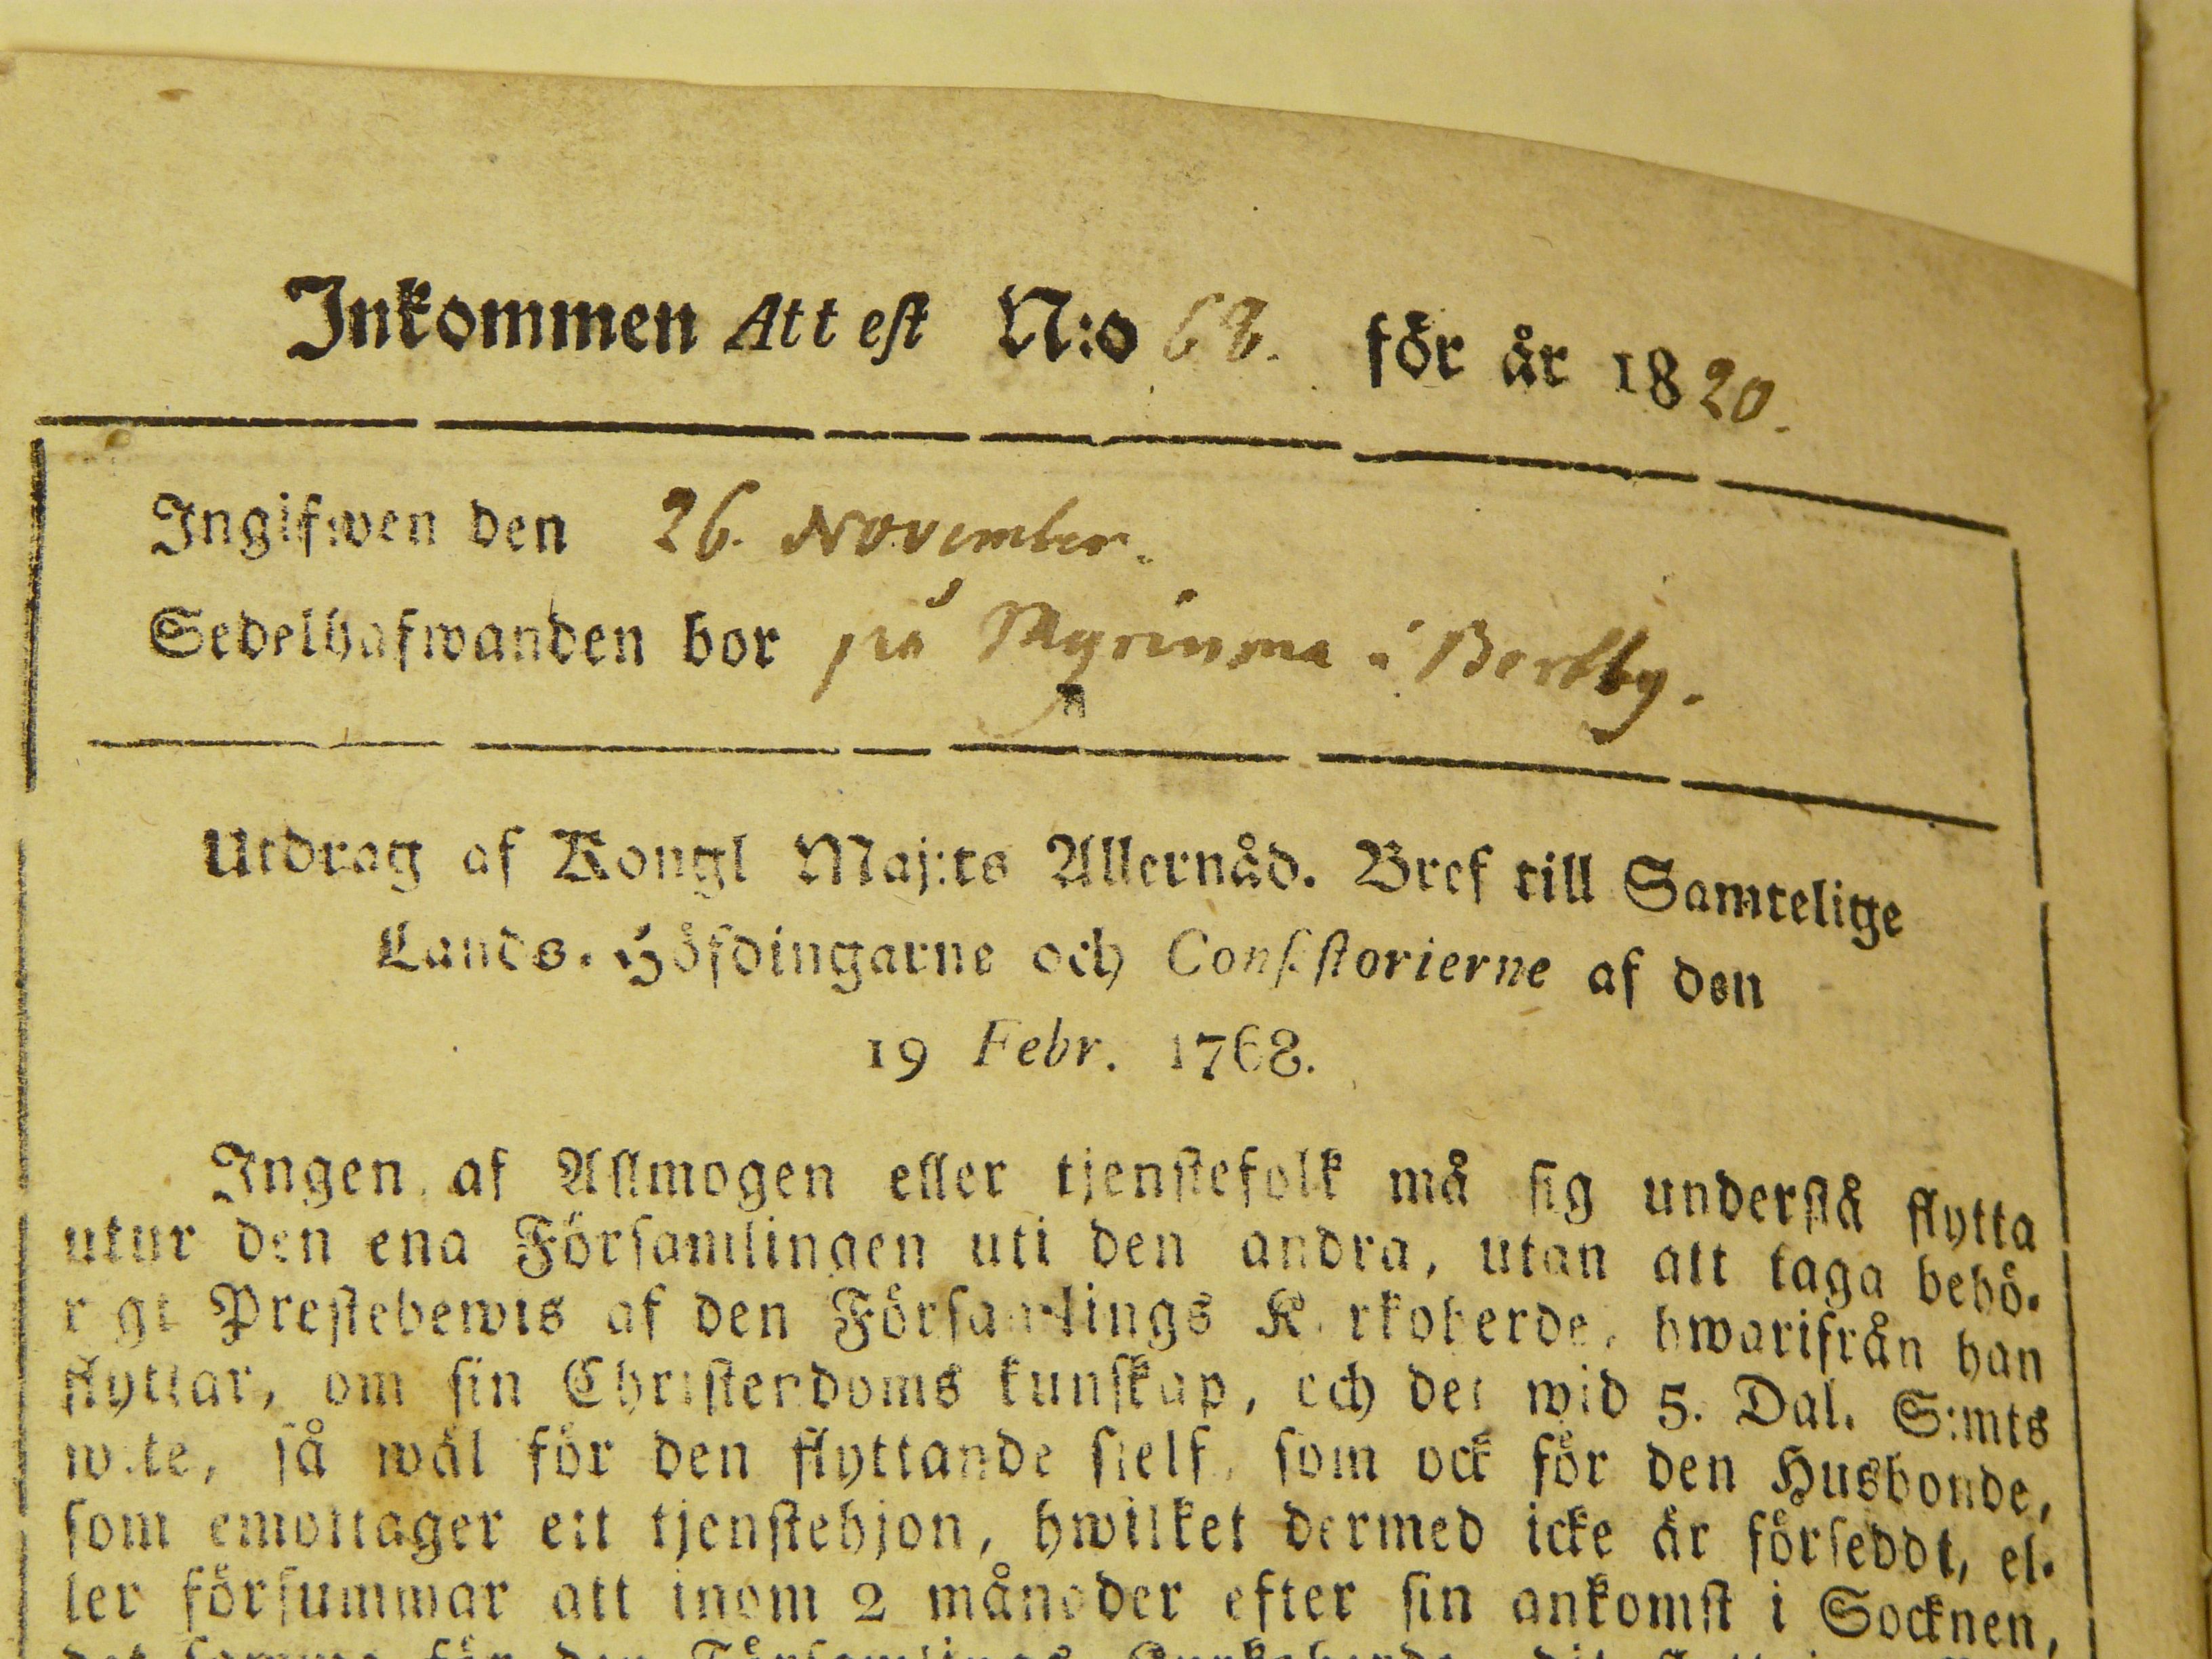 Inkommen Attest N:o 68. för år 1820.
Ingifwen den 26. November.
Sedelhafwanden bor på i Bertby.
Utdrag af Kongl Maj:ts Allernåd. Bref till Samtelige
Lands-Höfdingarne och Consistorierne af den
19 Febr. 1768.
Ingen af Allmogen eller tjenstefolk må sig understå flytta
utur den ena Församlingen uti den andra, utan att taga behö-
rigt Prestebewis af den Församlings Kyrkoherde, hwarifrån han
flyttar, om sin Christendoms kunskap, och det wid 5. Dal. S:mts
wite, så wäl för den flyttande sielf, som ock för den Husbonde,
som emottager ett tjenstehjon, hwilket dermed icke är förseddt, el-
ler försummar att inom 2 månader efter sin ankomst i Socknen,